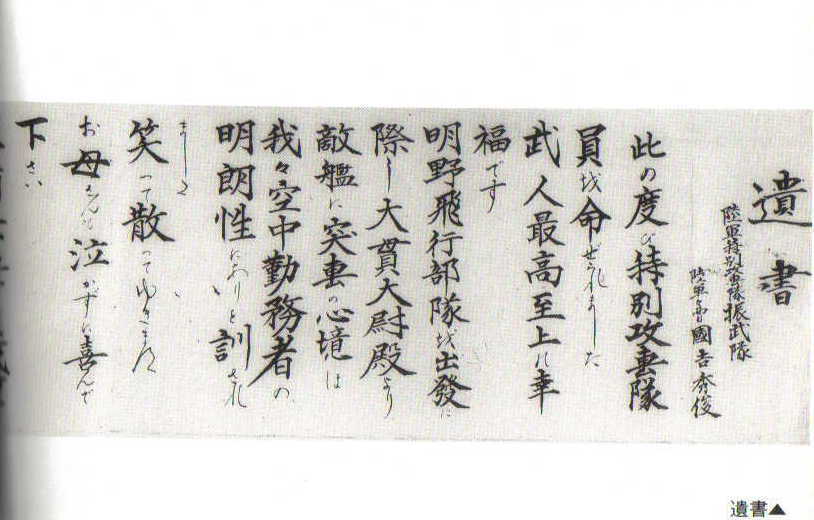 遺書
陸軍特別攻撃隊振武隊
陸軍少尉國吉秀俊
此の度び特別攻撃隊
員を命ぜられました
武人最高至上の幸
福です
明野飛行部隊を出發に
際し大貫大尉殿より
敵艦に突撃の心境は
我々空中勤務者の
明朗性にありと訓され
ました
笑って散ってゆきます
お母さんも泣かずに喜んで
下さい
遺書▲